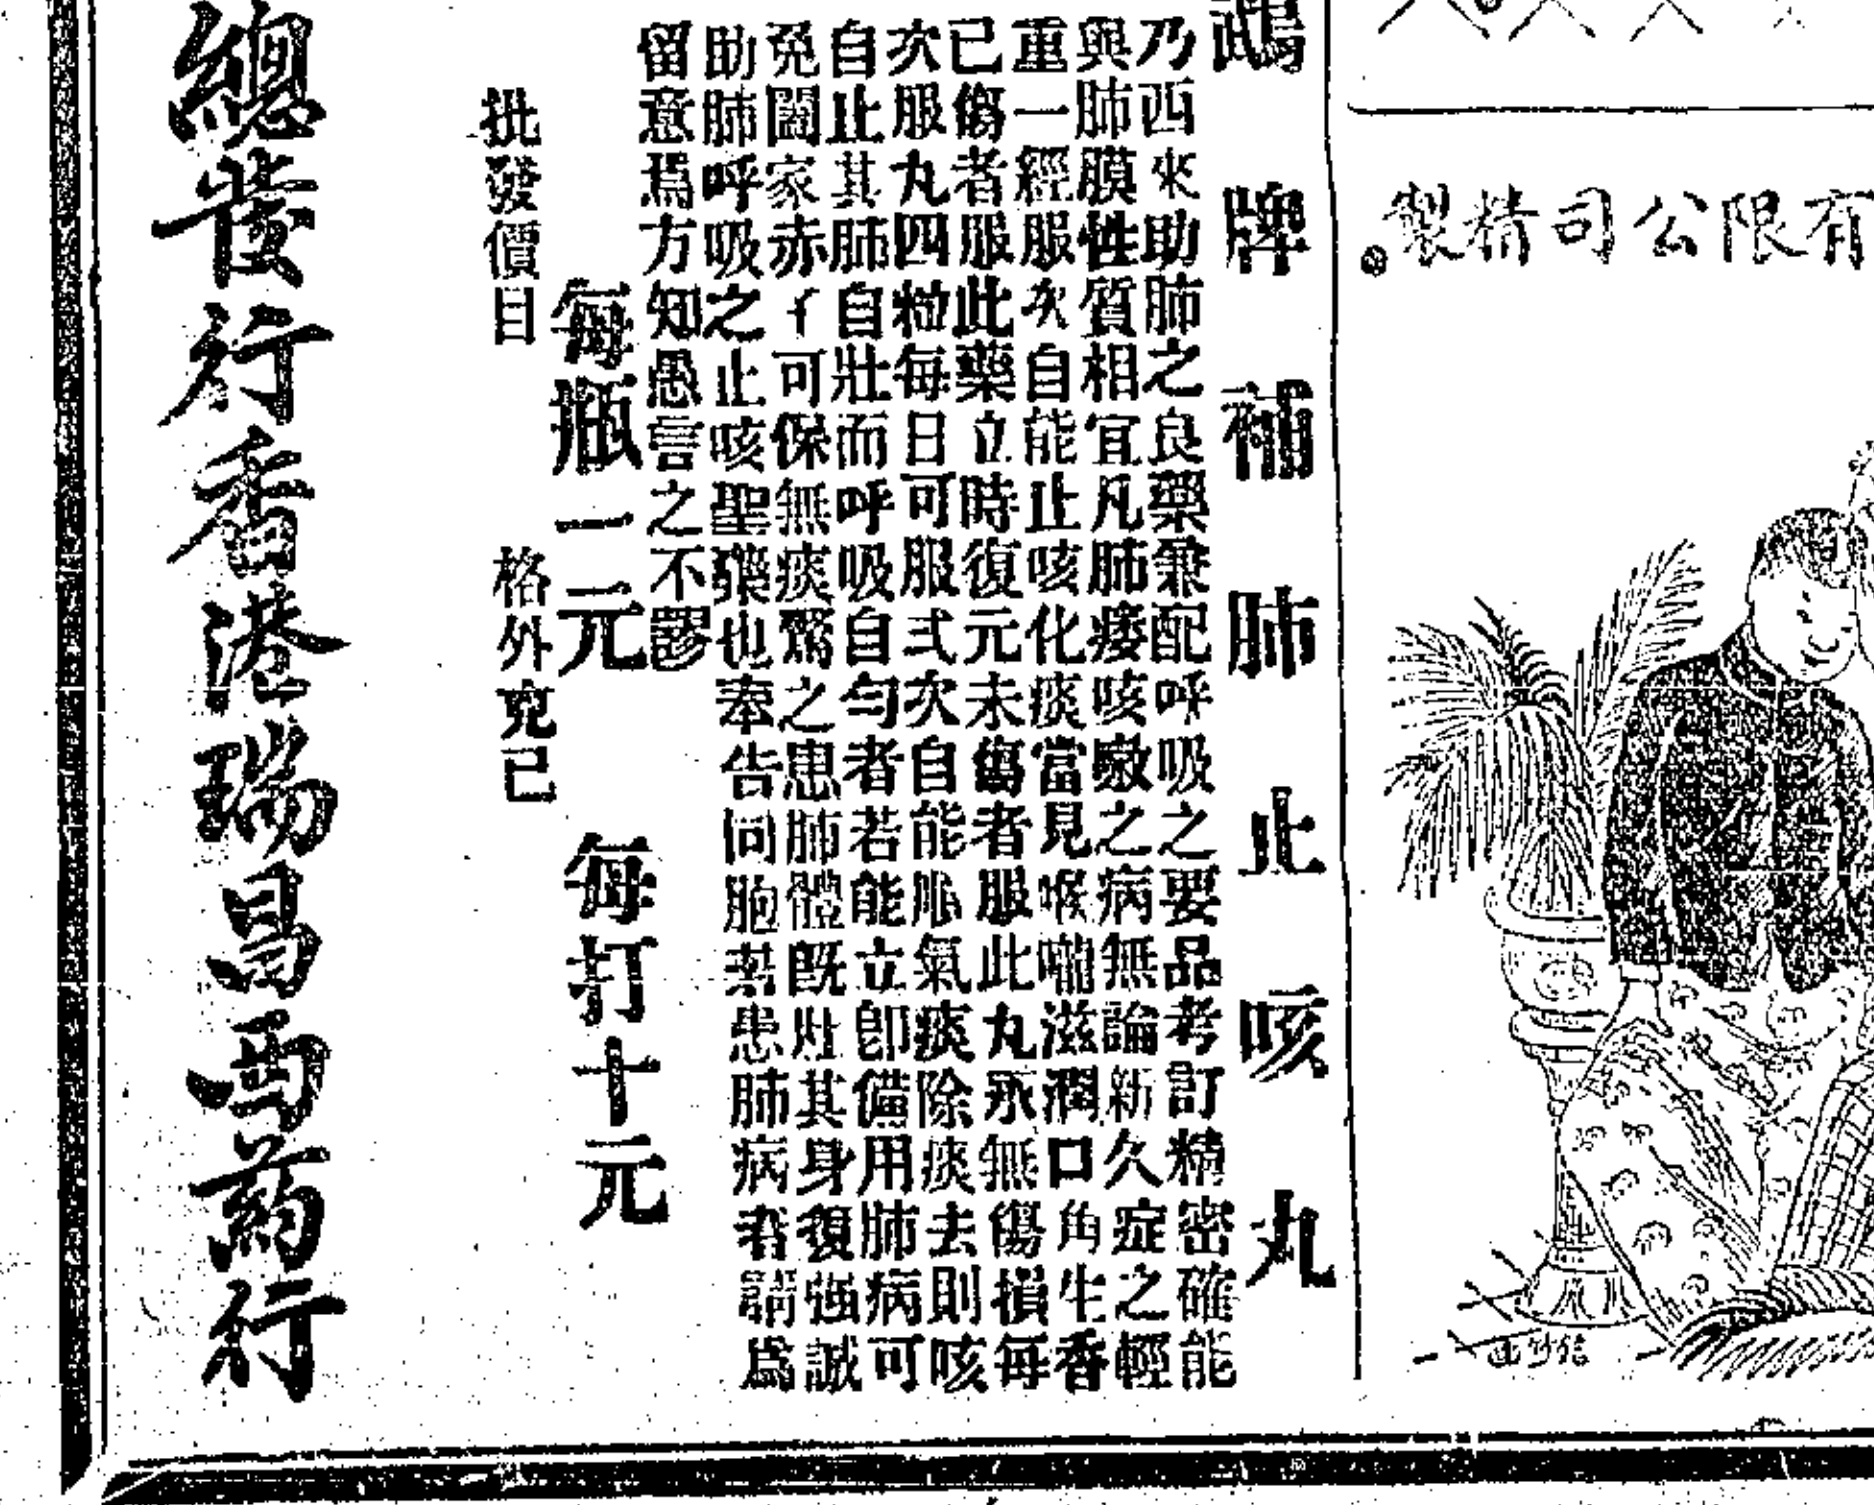 有限公司精製
鵡牌補肺止咳丸
乃西來助肺之良藥兼配呼吸之要品考訂精密確能
與肺膜性質相宜凡肺痿咳嗽之病無論新久症之輕
重一經服次自能止咳化痰當見喉嚨滋潤口角生香
已傷者服此藥立時復元未傷者服此丸永無傷損每
次服丸四粒每日可服弍次自能順氣痰除痰去則咳
自止其肺自壯而呼吸自勻者若能立卽備用肺病可
免闔家赤子可保無痰驚之患肺體旣壯其身復强誠
助肺呼吸之止咳聖藥也奉告同胞若患肺病者請爲
留意焉方知愚言之不謬
每瓶一元 每打十元
批發價目 格外克己
總發行香港瑞昌西葯行